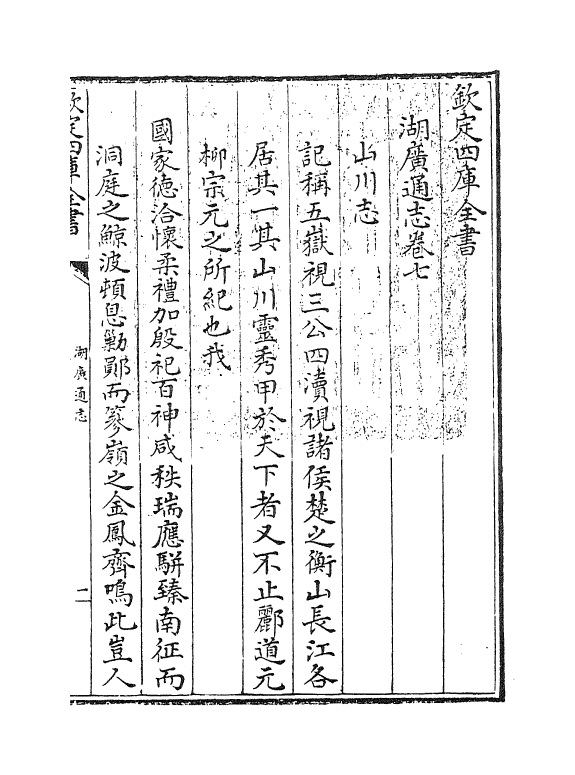 欽定四庫全書
湖廣通志卷七
山川志
記稱五嶽視三公四瀆視諸侯楚之衡山長江各
居其一其山川靈秀甲於天下者又不止酈道元
柳宗元之所紀也我
國家德洽懷柔禮加殷祀百神咸秩瑞應駢臻南征而
洞庭之鯨波頓息勦鄖而篸嶺之金鳳齊鳴此豈人
欽定四庫全書
湖廣通志
二